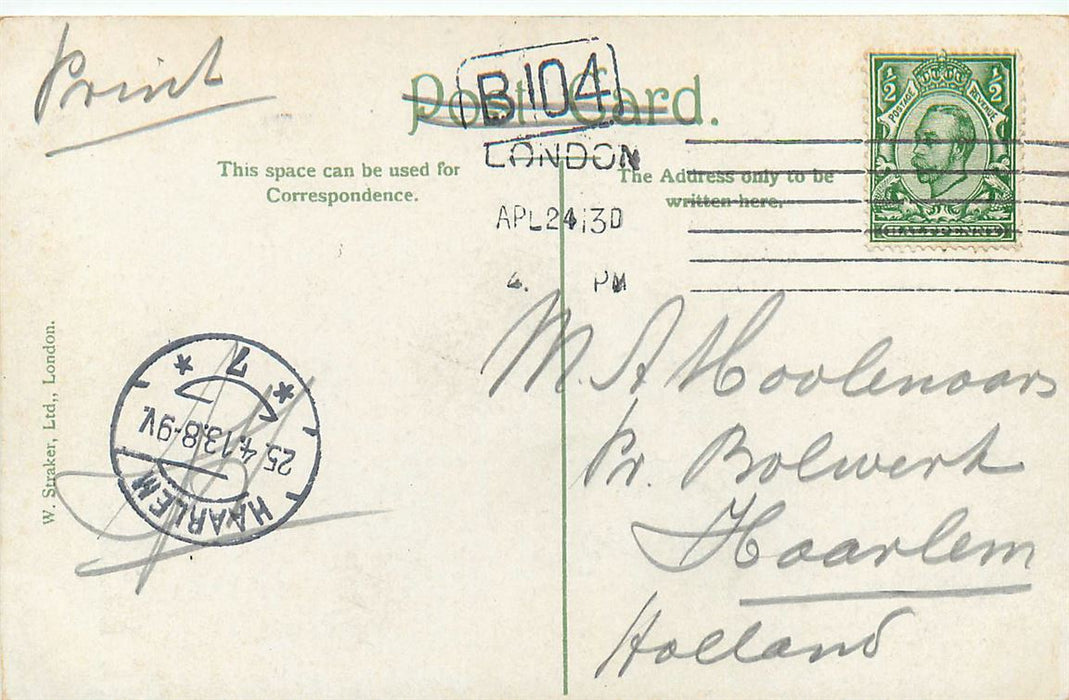 Print
Post Card.
B104
LONDON
APL 24 13 D
4. PM
½ ½
POSTAGE REVENUE
HALFPENNY
This space can be used for
Correspondence.
The Address only to be
written here.
W. Straker, Ltd., London.
7
25.4.13.8-9V.
HAARLEM
M. A Hoolenaars
Pr. Bolwerk
Haarlem
Holland